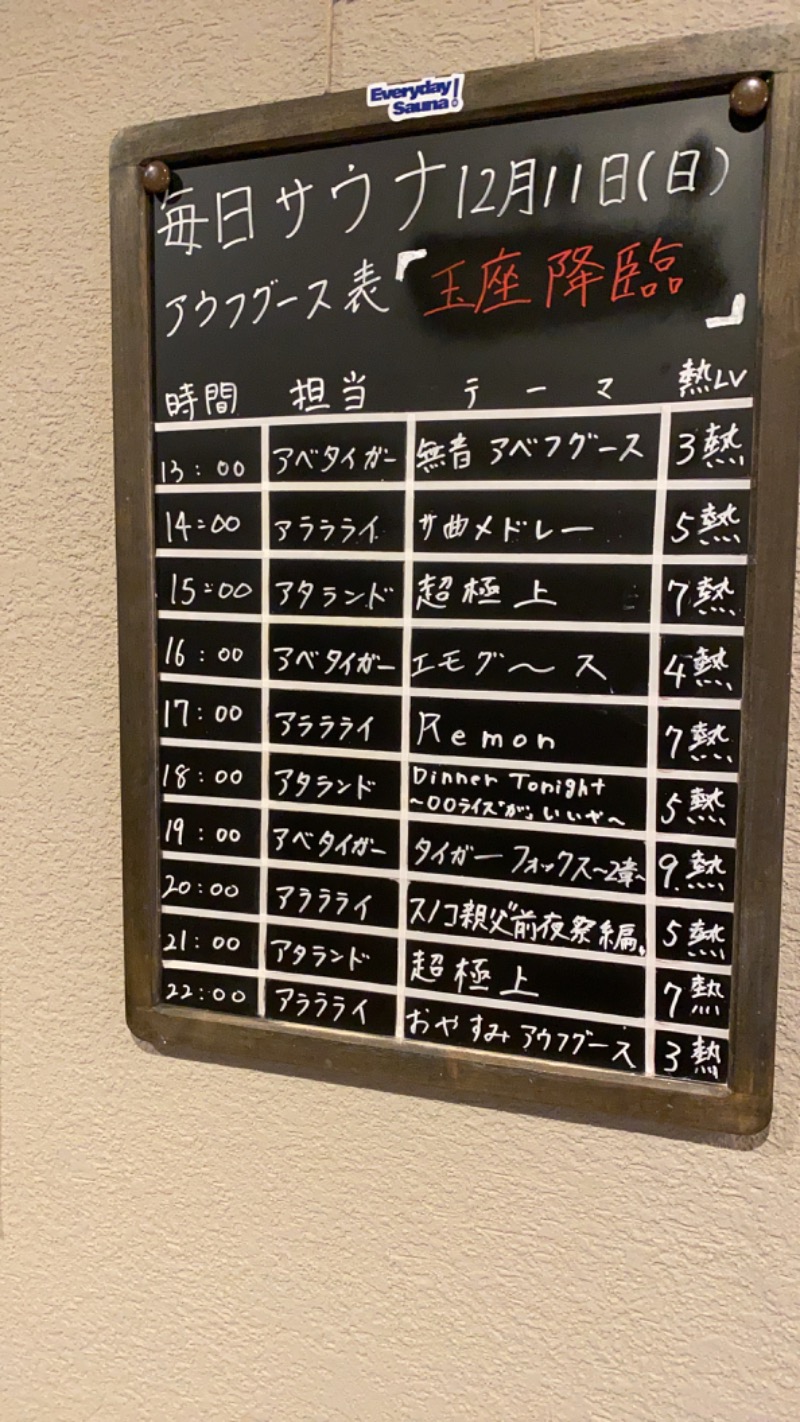 Everyday
Sauna!
毎日サウナ 12月11日(日)
アウフグース表「玉座降臨」
時間 担当 テーマ 熱LV
13:00 アベタイガー 無音 アベフグース 3熱
14:00 アララライ サ曲メドレー 5熱
15:00 アタランド 超極上 7熱
16:00 アベタイガー エモグ〜ス 4熱
17:00 アララライ Remon 7熱
18:00 アタランド Dinner Tonight 5熱
〜〇〇ライズ"が」いいや〜
19:00 アベタイガー タイガーフォックス〜2章〜 9熱
20:00 アララライ スノコ親父前夜祭編。 5熱
21:00 アタランド 超極上 7熱
22:00 アララライ おやすみアウフグース 3熱